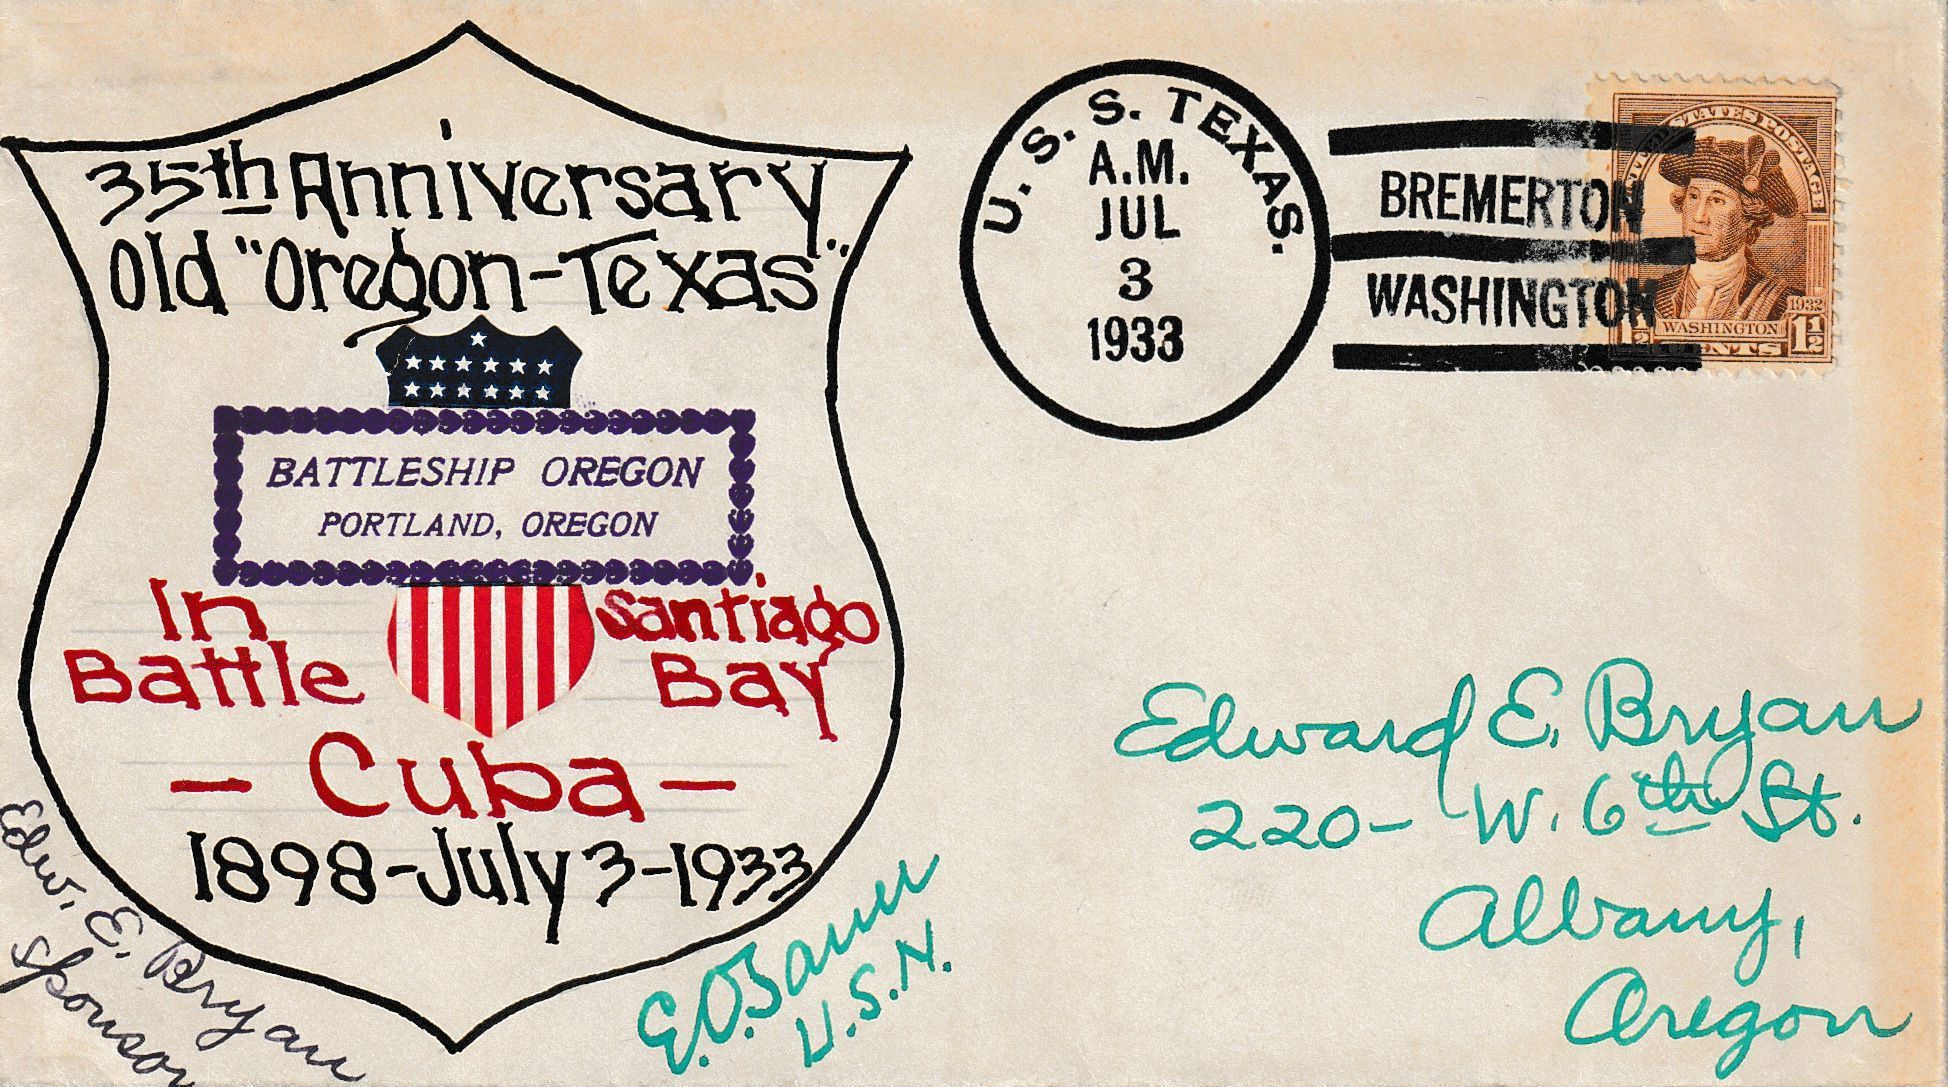 35th Anniversary
Old "Oregon-Texas"
BATTLESHIP OREGON
PORTLAND, OREGON
In Santiago
Battle Bay
- Cuba -
1898-July 3-1933
Edw. E. Bryan
Sponsor
U.S.N.
U. S. S. TEXAS.
A.M.
JUL
3
1933
BREMERTON
WASHINGTON
UNITED STATES POSTAGE
1932
WASHINGTON
1½ CENTS 1½
Edward E. Bryan
220- W. 6th St.
Albany,
Oregon